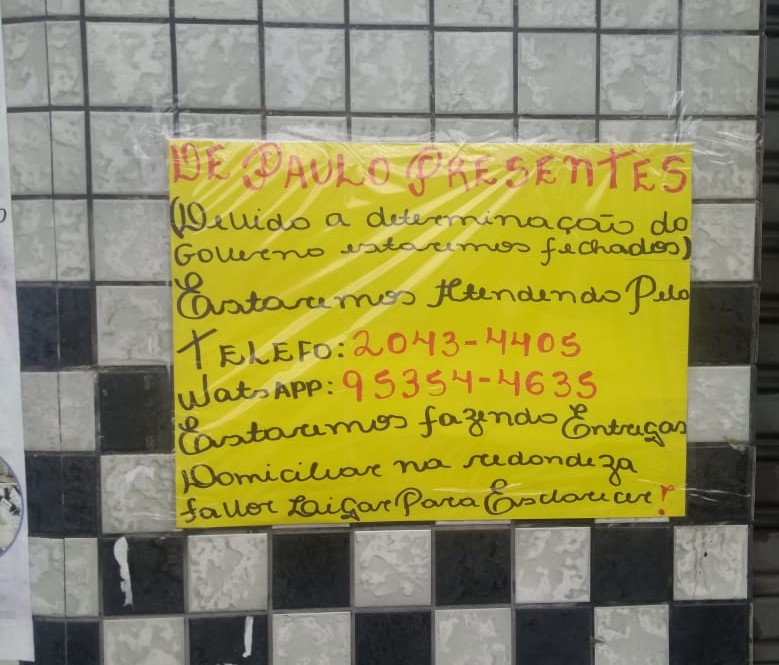 DE PAULO PRESENTES
(Devido a determinação do
Governo estaremos fechados)
Estaremos Atendendo Pelo
TELEFO: 2043-4405
WatsAPP: 95354-4635
Estaremos fazendo Entregas
Domiciliar na redondeza
favor Ligar Para Esclarecer!